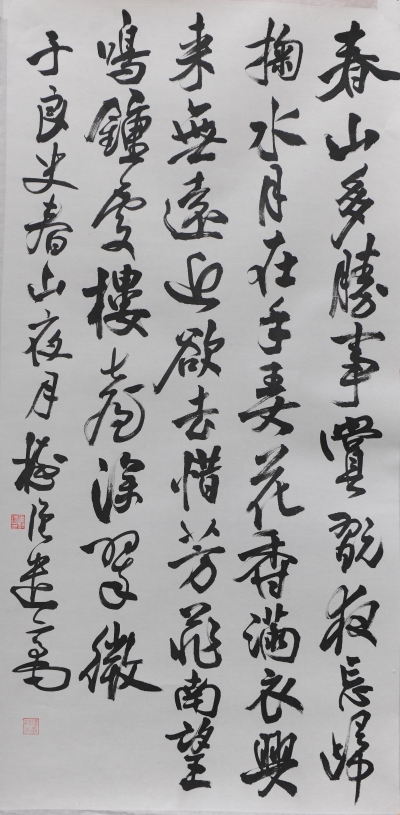 春山多勝事賞翫夜忘歸
掬水月在手弄花香滿衣興
来無遠近欲去惜芳菲南望
鳴鐘處樓臺深翠微
于良史春山夜月